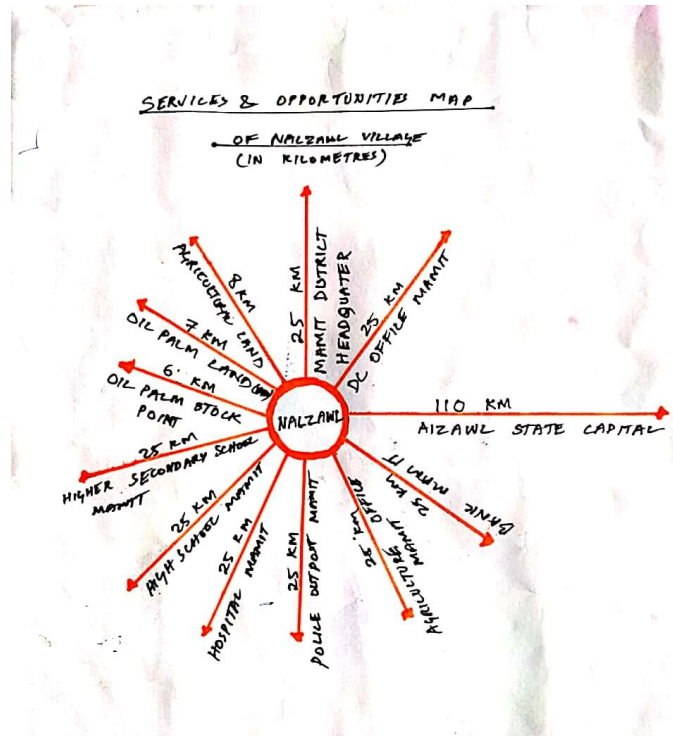 SERVICES & OPPORTUNITIES MAP
OF NALZAWL VILLAGE
(IN KILOMETRES)
NALZAWL
25 KM
MAMIT DISTRICT
HEADQUATER
25 KM
DC OFFICE MAMIT
110 KM
AIZAWL STATE CAPITAL
25 KM
BANK MAMIT
25 KM
AGRICULTURE OFFICE
MAMIT
25 KM
POLICE OUTPOST MAMIT
25 KM
HOSPITAL MAMIT
25 KM
HIGH SCHOOL MAMIT
25 KM
HIGHER SECONDARY SCHOOL
MAMIT
6 KM
OIL PALM STOCK
POINT
7 KM
OIL PALM LAND
8 KM
AGRICULTURAL LAND